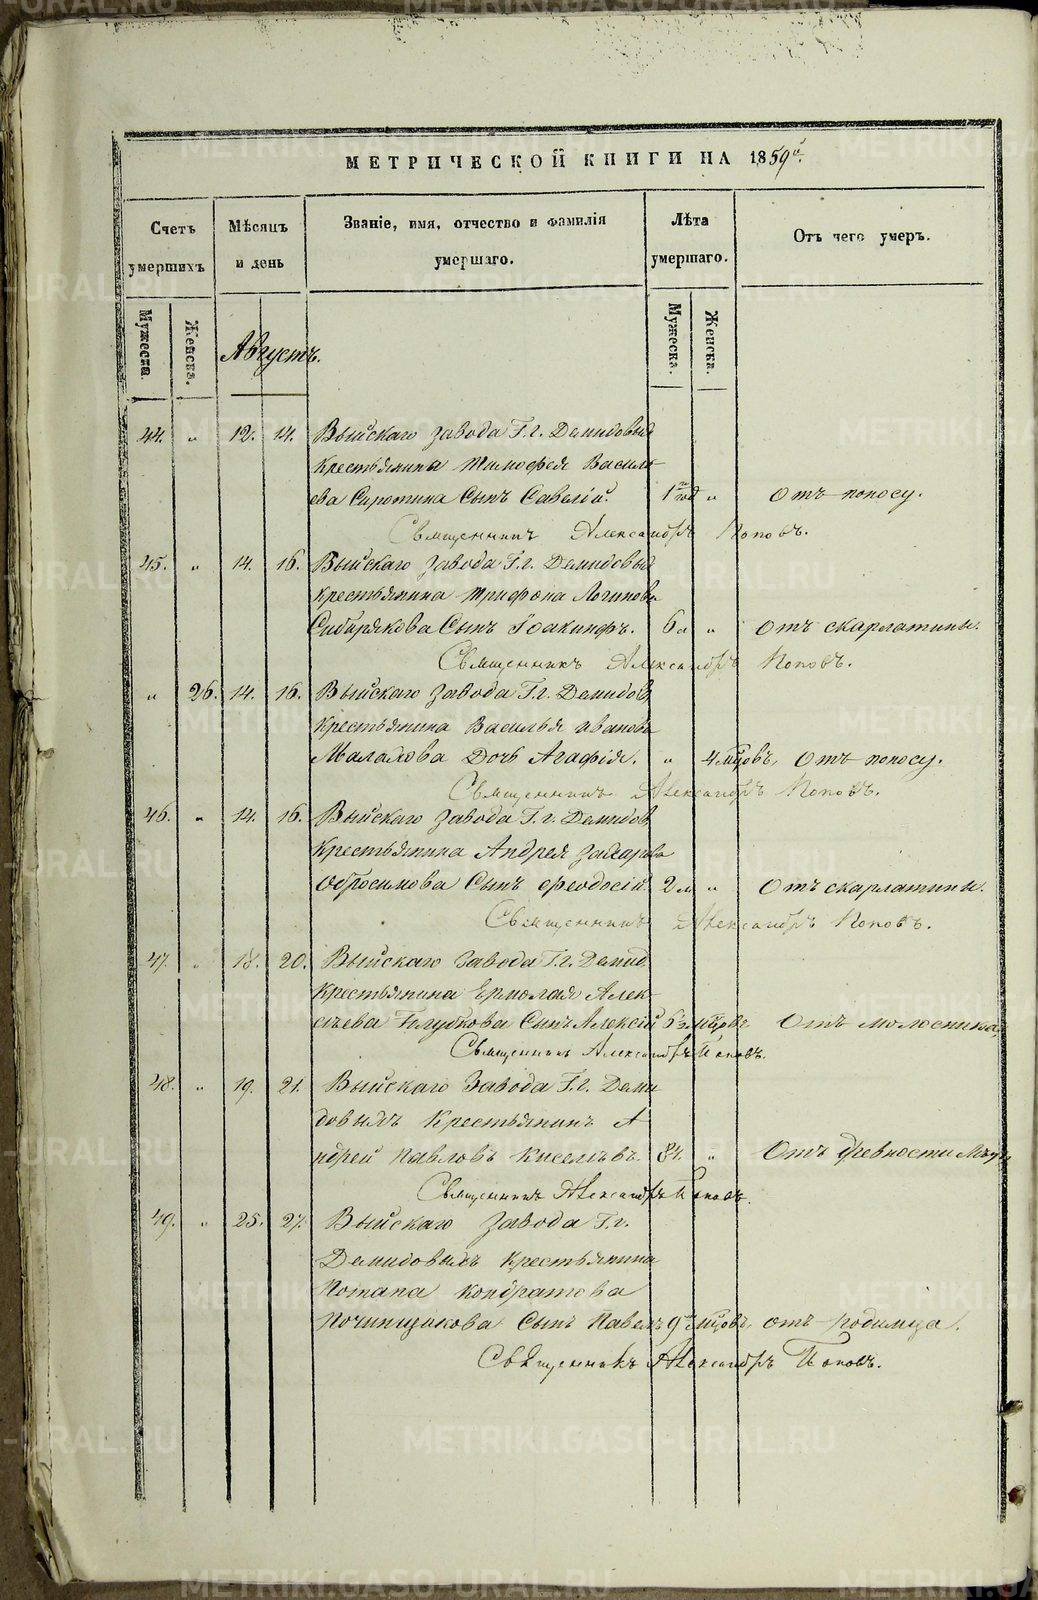 МЕТРИЧЕСКОЙ КНИГИ НА 1859й.
Счетъ умершихъ
Мѣсяцъ и день
Званіе, имя, отчество и фамилія умершаго.
Лѣта умершаго.
Отъ чего умеръ.
Мужеска. Женска.
Мужеска. Женска.
Августъ.
44. " 12. 14. Выйскаго завода Г.г. Демидовых
Крестьянина Тимофея Василь-
ева Сиротина Сынъ Савелій. 1 год " Отъ поносу.
Священникъ Александръ Поповъ.
45. " 14. 16. Выйскаго завода Г.г. Демидовых
Крестьянина Трифона Логинова
Сибирякова Сынъ Іоакинфъ. 6 л " Отъ скарлатины.
Священникъ Александръ Поповъ.
" 26. 14. 16. Выйскаго завода Г.г. Демидов.
Крестьянина Василья Иванова
Малахова Дочь Агафія. " 4 мцовъ, Отъ поносу.
Священникъ Александръ Поповъ.
46. " 14. 16. Выйскаго завода Г.г. Демидов.
Крестьянина Андрея Захарова
Обросимова Сынъ Феодосій 2 л " Отъ скарлатины.
Священникъ Александръ Поповъ.
47. " 18. 20. Выйскаго завода Г.г. Демид.
Крестьянина Ермолая Алек-
сѣева Глубкова Сынъ Алексій 6 мцовъ Отъ молосника,
Священникъ Александръ Поповъ.
48. " 19. 21. Выйскаго Завода Г.г. Деми
довыхъ Крестьянинъ А
ндрей Павловъ Киселевъ. 84. " Отъ древности лѣтъ
Священникъ Александръ Поповъ.
49. " 25. 27. Выйскаго завода Г.г.
Демидовыхъ Крестьянина
Потапа Кондратова
Почипщикова Сынъ Павелъ 9 мцовъ, отъ родимца.
Священникъ Александръ Поповъ.
METRIKI.GASO-URAL.RU